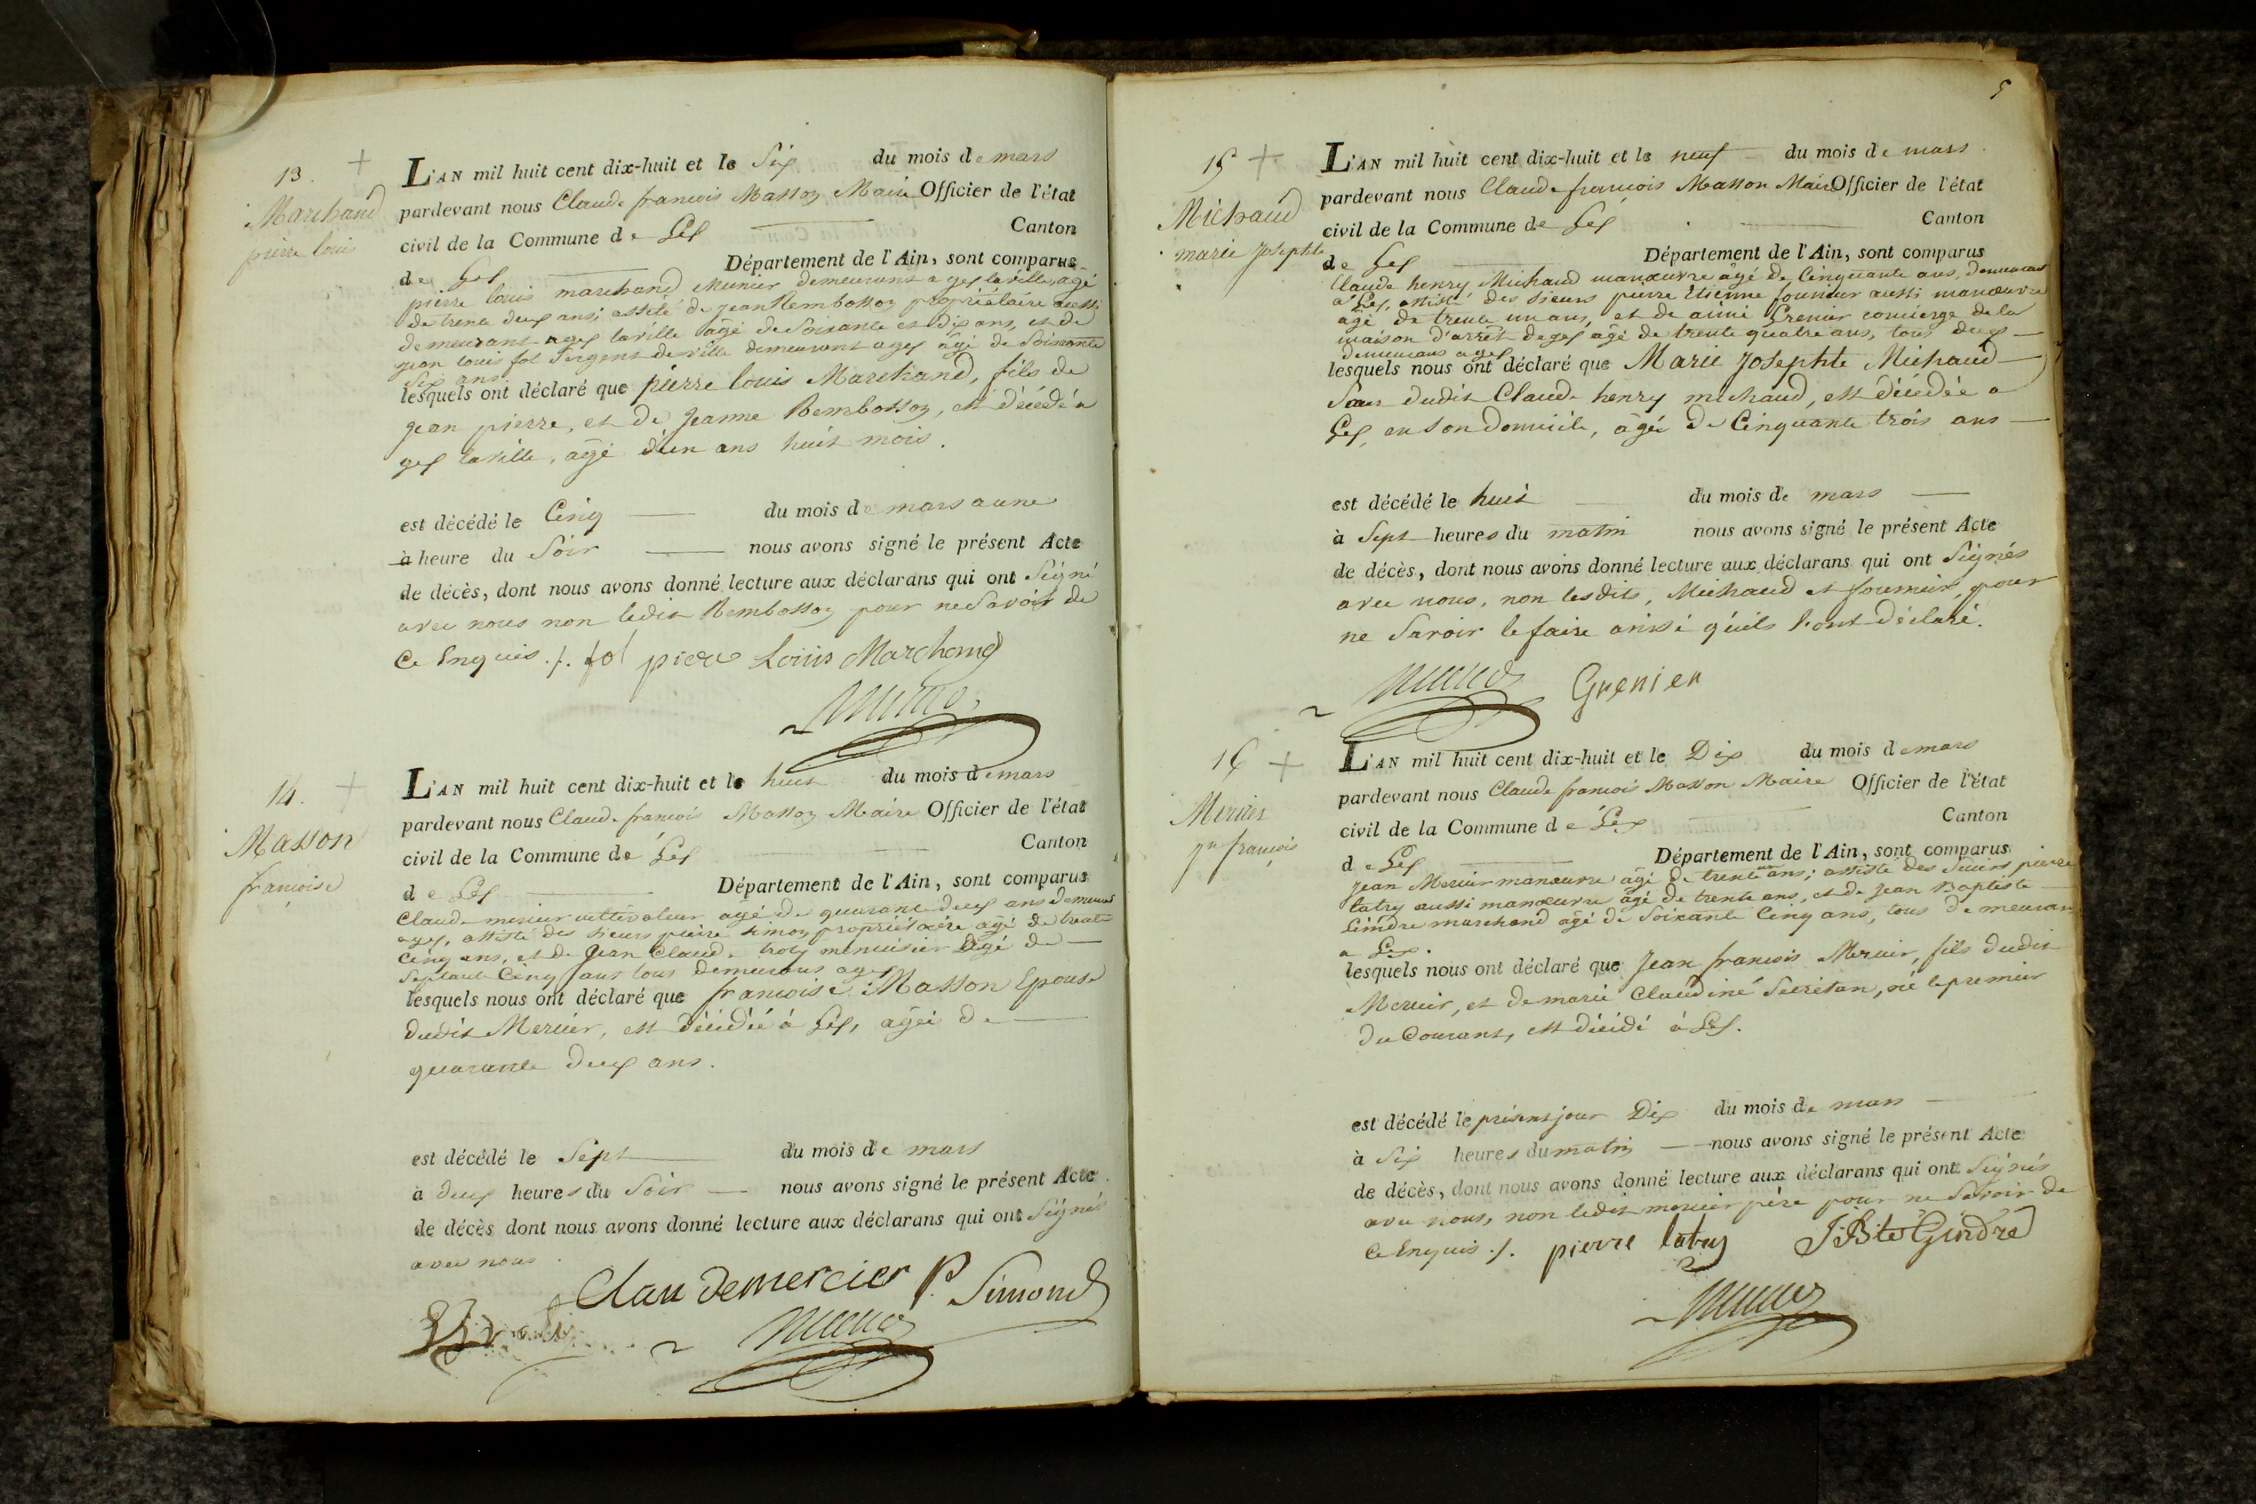 13. +
Marchand
pierre louis
L'AN mil huit cent dix-huit et le Six du mois de mars
pardevant nous Claude françois Masson Maire Officier de l'état
civil de la Commune de Gex Canton
de Gex Département de l'Ain, sont comparus
pierre louis marchand Munier demeurant a gex la ville, agé
de trente deux ans; assisté de jean Rembosson propriétaire aussi
demeurant a gex laville agé de Soixante et dix ans, et de
jean louis fol Sergent de ville demeurant a gex agé de Soixante
Six ans.
lesquels ont déclaré que pierre louis Marchand, fils de
jean pierre, et de Jeanne Rembosson, est décédé a
gex laville, agé d'un ans huit mois.
est décédé le Cinq du mois de mars a une
à heure du Soir nous avons signé le présent Acte
de décès, dont nous avons donné lecture aux déclarans qui ont Signé
avec nous non ledit Rembosson pour ne Savoir de
Ce Enquis ./. fol piere Louis Marchand
14. +
Masson
françoise
L'AN mil huit cent dix-huit et le huit du mois de mars
pardevant nous Claude françois Masson Maire Officier de l'état
civil de la Commune de Gex Canton
de Gex Département de l'Ain, sont comparus
Claude mercier cultivateur agé de quarante deux ans demeurant
a gex, assisté des Sieurs pierre Simon propriétaire agé de trente
Cinq ans, et de Jean Claude menuisier agé de
Septante Cinq ans tous demeurans a gex
lesquels nous ont déclaré que françoise Masson Epouse
dudit Mercier, est décédée à Gex, agée de
quarante deux ans.
est décédé le Sept du mois de mars
à deux heures du Soir nous avons signé le présent Acte
de décès dont nous avons donné lecture aux déclarans qui ont Signés
avec nous.
Claudemercier P. Simond
5
15 +
Michaud
marie Josephte
L'AN mil huit cent dix-huit et le neuf du mois de mars
pardevant nous Claude françois Masson Maire Officier de l'état
civil de la Commune de Gex Canton
de Gex Département de l'Ain, sont comparus
Claude henry Michaud manœuvre âgé de Cinquante ans, demeurant
à Gex, assisté des sieurs pierre Etienne fournier aussi manœuvre
agé de trente un ans, et de aimé Grenier concierge de la
maison d'arrêt de gex agé de trente quatre ans, tous deux
demeurans a gex
lesquels nous ont déclaré que Marie Josephte Michaud
Sœur dudit Claude henry michaud, est décédée a
Gex, en Son domicile, âgée de Cinquante trois ans
est décédé le huit du mois de mars
à Sept heures du matin nous avons signé le présent Acte
de décès, dont nous avons donné lecture aux déclarans qui ont Signés
avec nous, non lesdits, Michaud et fournier, pour
ne Savoir le faire ainsi qu'ils l'ont déclaré.
Grenier
16 +
Mercier
jn françois
L'AN mil huit cent dix-huit et le Dix du mois de mars
pardevant nous Claude françois Masson Maire Officier de l'état
civil de la Commune de Gex Canton
de Gex Département de l'Ain, sont comparus
Jean Mercier manœuvre agé de trente un ans; assisté des Sieurs pierre
latry aussi manœuvre agé de trente ans, et de Jean Baptiste
Geindre marchand agé de Soixante Cinq ans, tous demeurans
a Gex.
lesquels nous ont déclaré que Jean françois Mercier, fils dudit
Mercier, et de marie Claudine Secretan, né le premier
du Courant, est décédé à Gex.
est décédé le présent jour Dix du mois de mars
à Six heures du matin nous avons signé le présent Acte
de décès, dont nous avons donné lecture aux déclarans qui ont Signés
avec nous, non ledit mercier père pour ne Savoir de
Ce Enquis ./. pierre latry J. Bte Gindre